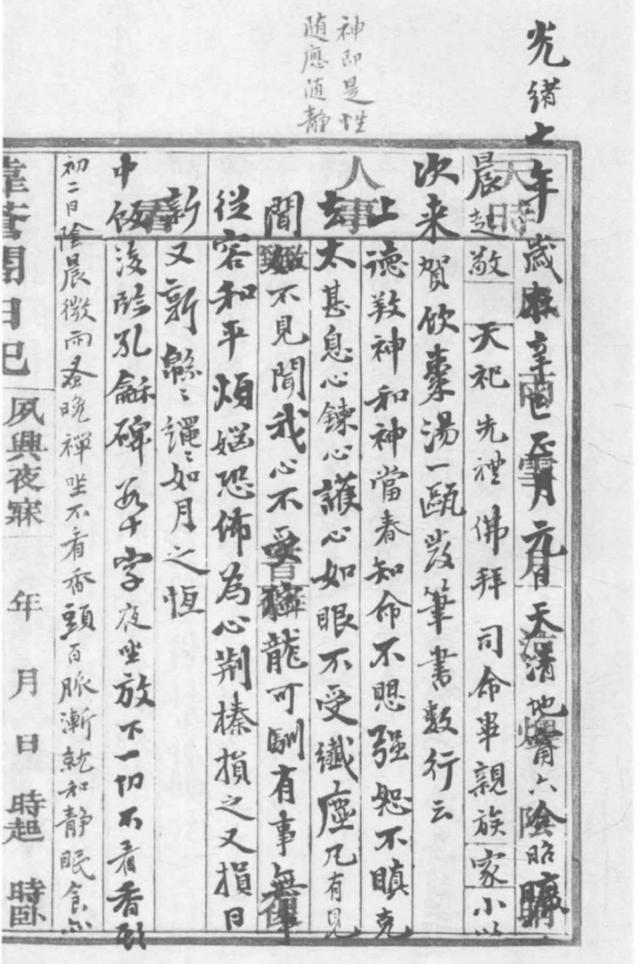 神即是性
随應随静
光緒七年歲在辛巳正月元日天清地甯六陰昭曠
晨起敬天祀先禮佛拜司命畢親族家小以
次来賀飲棗湯一甌發筆書数行云
上德敎神和神當春知命不思强恕不瞋克
去太甚息心鍊心護心如眼不受纖塵凡有見
聞如不見聞我心不受獰龍可馴有事無事
從容和平煩惱恐怖為心荆榛損之又損日
新又新緜緜繩繩如月之恆
中飯後臨孔龢碑若干字夜坐放下一切不看香頭
初二日陰晨微雨蚤晚禪坐不看香頭百脈漸就和静眠食亦
夙興夜寐 年 月 日 時起 時卧